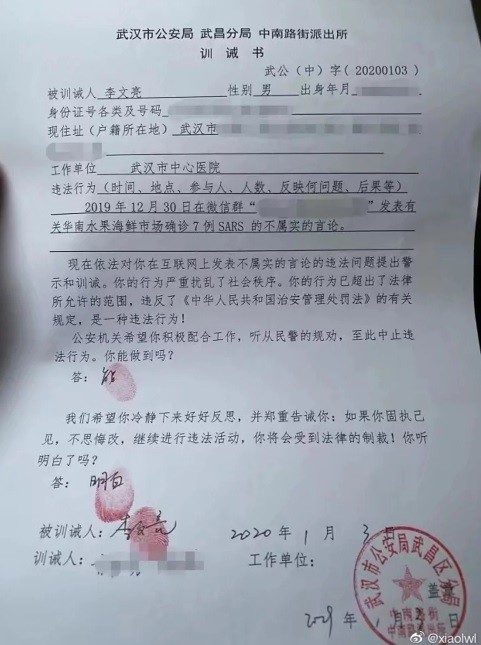 武汉市公安局 武昌分局 中南路街派出所
训 诫 书
武公（中）字（20200103）
被训诫人 李文亮 性别 男 出身年月
身份证号各类及号码
现住址（户籍所在地） 武汉市
工作单位 武汉市中心医院
违法行为（时间、地点、参与人、人数、反映何问题、后果等）
2019年12月30日在微信群“ ”发表有
关华南水果海鲜市场确诊7例SARS的不属实的言论。
现在依法对你在互联网上发表不属实的言论的违法问题提出警
示和训诫。你的行为严重扰乱了社会秩序。你的行为已超出了法律
所允许的范围，违反了《中华人民共和国治安管理处罚法》的有关
规定，是一种违法行为！
公安机关希望你积极配合工作，听从民警的规劝，至此中止违
法行为。你能做到吗？
答：能
我们希望你冷静下来好好反思，并郑重告诫你：如果你固执己
见，不思悔改，继续进行违法活动，你将会受到法律的制裁！你听
明白了吗？
答：明白
被训诫人：李文亮 2020年1月3日
训诫人： 工作单位：
武汉市公安局武昌区分局
盖章
中南路街
中南路派出所
年 1 月 3 日
@xiaolwl